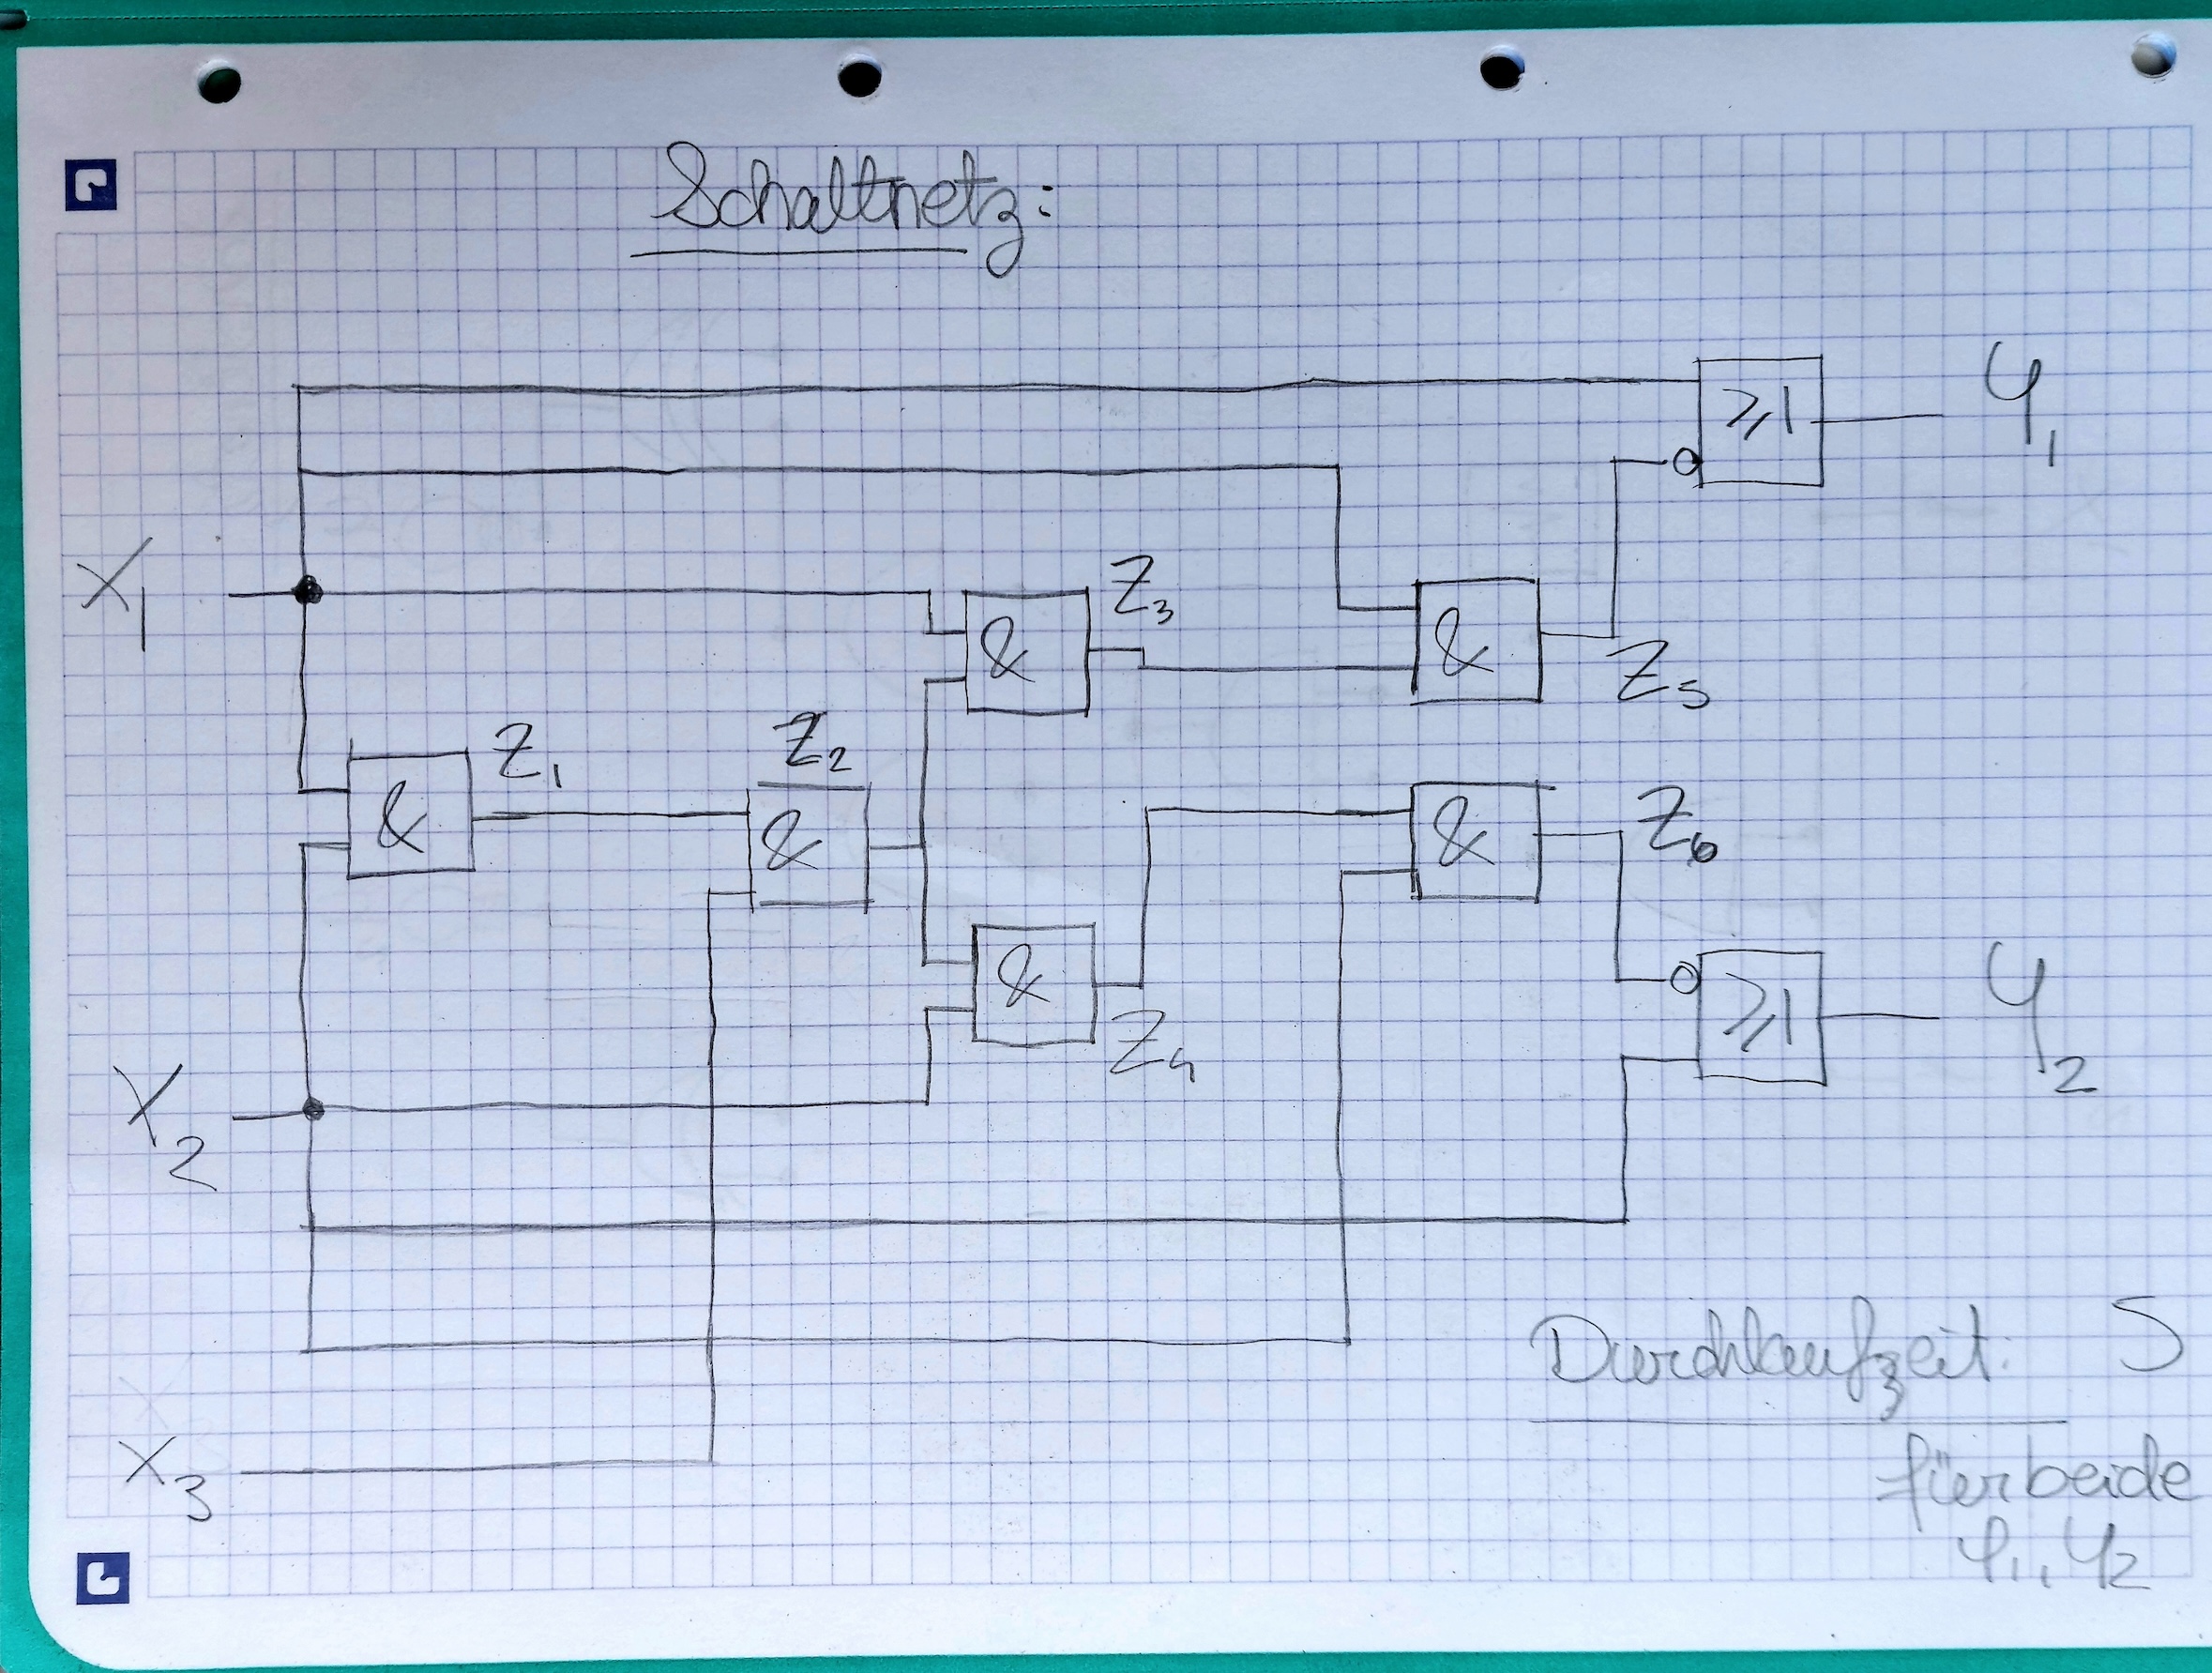 Schaltnetz:
≥1 Y1
X1 & Z3 & Z5
& Z1 & Z2 & Z6
& Z4 ≥1 Y2
X2
Durchlaufzeit: 5
X3 für beide
Y1, Y2